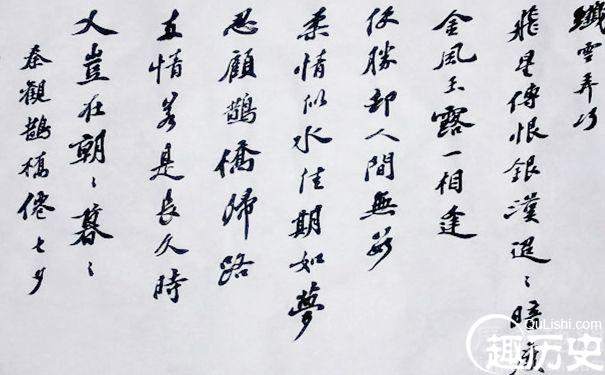 纖雲弄巧
飛星傳恨銀漢迢〻暗度
金風玉露一相逢
便勝卻人間無數
柔情似水佳期如夢
忍顧鵲橋歸路
两情若是長久時
又豈在朝〻暮〻
秦觀鵲橋僊七夕
QuLishi.com
趣历史